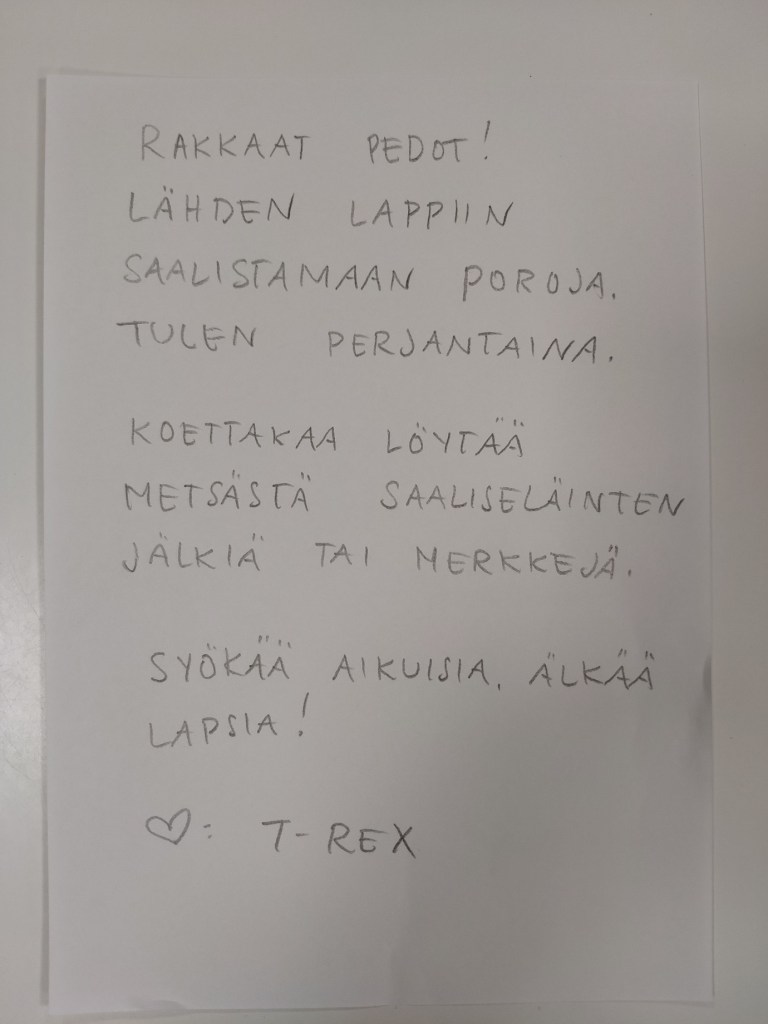 RAKKAAT PEDOT!
LÄHDEN LAPPIIN
SAALISTAMAAN POROJA.
TULEN PERJANTAINA.
KOETTAKAA LÖYTÄÄ
METSÄSTÄ SAALISELÄINTEN
JÄLKIÄ TAI MERKKEJÄ.
SYÖKÄÄ AIKUISIA, ÄLKÄÄ
LAPSIA!
♡: T-REX